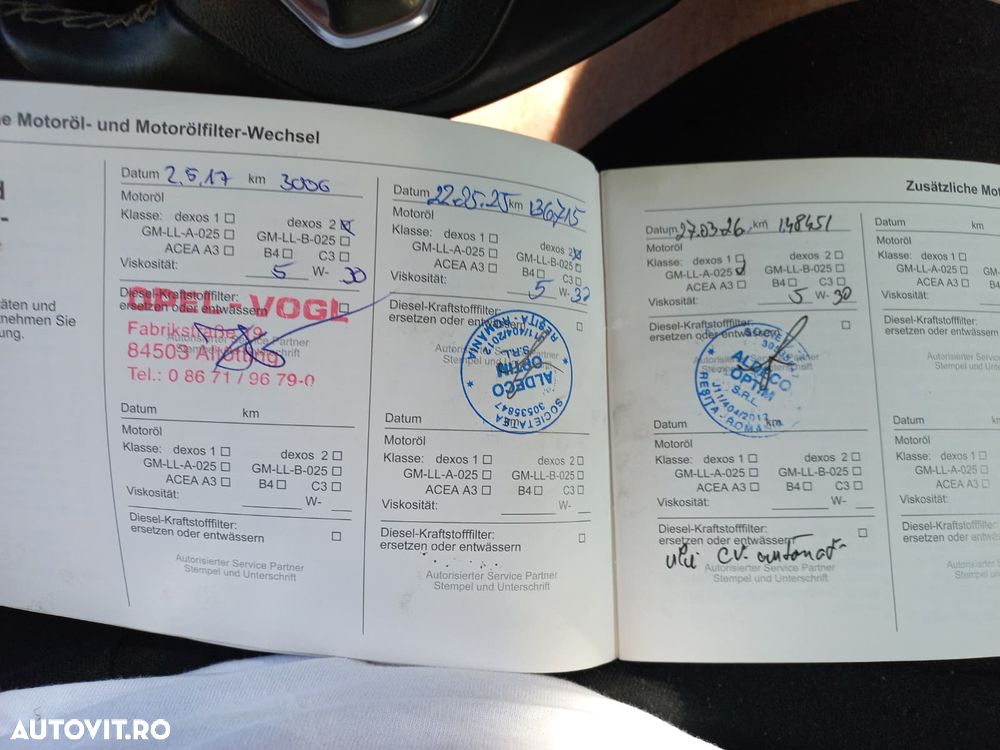 e Motoröl- und Motorölfilter-Wechsel
Datum 2.5.17 km 3006
Motoröl
Klasse: dexos 1 ☐ dexos 2 ☒
GM-LL-A-025 ☐ GM-LL-B-025 ☐
ACEA A3 ☐ B4 ☐ C3 ☐
Viskosität: 5 W- 30
Diesel-Kraftstofffilter:
ersetzen oder entwässern ☐
OPEL-VOGL
Fabrikstraße 9
84503 Altötting
Tel.: 0 86 71 / 96 79-0
Autorisierter Service Partner
Stempel und Unterschrift
täten und
nehmen Sie
ung.
Datum km
Motoröl
Klasse: dexos 1 ☐ dexos 2 ☐
GM-LL-A-025 ☐ GM-LL-B-025 ☐
ACEA A3 ☐ B4 ☐ C3 ☐
Viskosität: W-
Diesel-Kraftstofffilter:
ersetzen oder entwässern ☐
Autorisierter Service Partner
Stempel und Unterschrift
Datum 22.05.25 km 136715
Motoröl
Klasse: dexos 1 ☐ dexos 2 ☒
GM-LL-A-025 ☐ GM-LL-B-025 ☐
ACEA A3 ☐ B4 ☐ C3 ☐
Viskosität: 5 W- 30
Diesel-Kraftstofffilter:
ersetzen oder entwässern ☐
Autorisierter Service Partner
Stempel und Unterschrift
SOCIETATEA
ALDECO
OPTIM
S.R.L.
30535847
J11/404/2012
REȘIȚA - ROMANIA
Datum km
Motoröl
Klasse: dexos 1 ☐ dexos 2 ☐
GM-LL-A-025 ☐ GM-LL-B-025 ☐
ACEA A3 ☐ B4 ☐ C3 ☐
Viskosität: W-
Diesel-Kraftstofffilter:
ersetzen oder entwässern ☐
Autorisierter Service Partner
Stempel und Unterschrift
Zusätzliche Mot
Datum 27.03.26 km 148451
Motoröl
Klasse: dexos 1 ☐ dexos 2 ☐
GM-LL-A-025 ☑ GM-LL-B-025 ☐
ACEA A3 ☐ B4 ☐ C3 ☐
Viskosität: 5 W- 30
Diesel-Kraftstofffilter:
ersetzen oder entwässern ☐
Autorisierter Service Partner
Stempel und Unterschrift
ALDECO
OPTIM
S.R.L.
J11/404/2012
REȘIȚA - ROMA
Datum km
Motoröl
Klasse: dexos 1 ☐ dexos 2 ☐
GM-LL-A-025 ☐ GM-LL-B-025 ☐
ACEA A3 ☐ B4 ☐ C3 ☐
Viskosität: W-
Diesel-Kraftstofffilter:
ersetzen oder entwässern ☐
ulei CV. automat-
Autorisierter Service Partner
Stempel und Unterschrift
Datum km
Motoröl
Klasse: dexos 1 ☐
GM-LL-A-025 ☐ GM
ACEA A3 ☐ B4
Viskosität:
Diesel-Kraftstofffilter:
ersetzen oder entwässern
Autorisierter Serv
Stempel und Unt
Datum km
Motoröl
Klasse: dexos 1 ☐
GM-LL-A-025 ☐
ACEA A3 ☐
Viskosität:
Diesel-Kraftstofffilter:
ersetzen oder entwäss
Autorisierter
Stempel un
AUTOVIT.RO